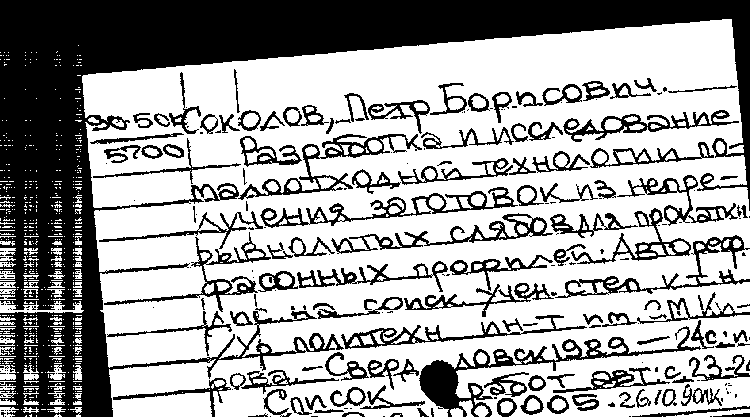 90-50к Соколов, Петр Борисович.
5700 Разработка и исследование
малоотходной технологии по-
лучения заготовок из непре-
рывнолитых слябов для прокатки
фасонных профилей: Автореф.
дис. на соиск. учен. степ. к.т.н.
/Ур политехн ин-т им. С.М. Ки-
рова. - Свердловск, 1989 - 24с: и
Список работ авт: с. 23-2
N 000005. 26.10.90